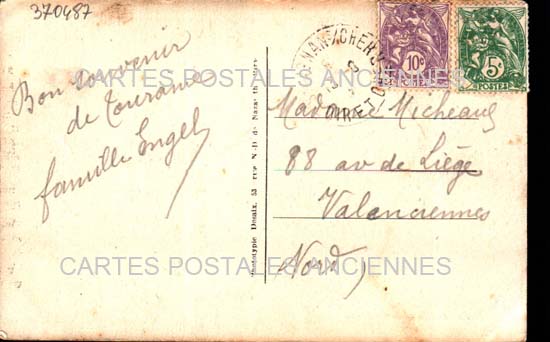 370487
10c
5c
POSTES
CARTES POSTALES ANCIENNES
Bon souvenir
de Touraine
famille Engel
Madame Micheaux
88 av de Liège
Valenciennes
Nord
Phototypie Desaix, 53 rue N.-D. de Nazareth
CARTES POSTALES ANCIENNES